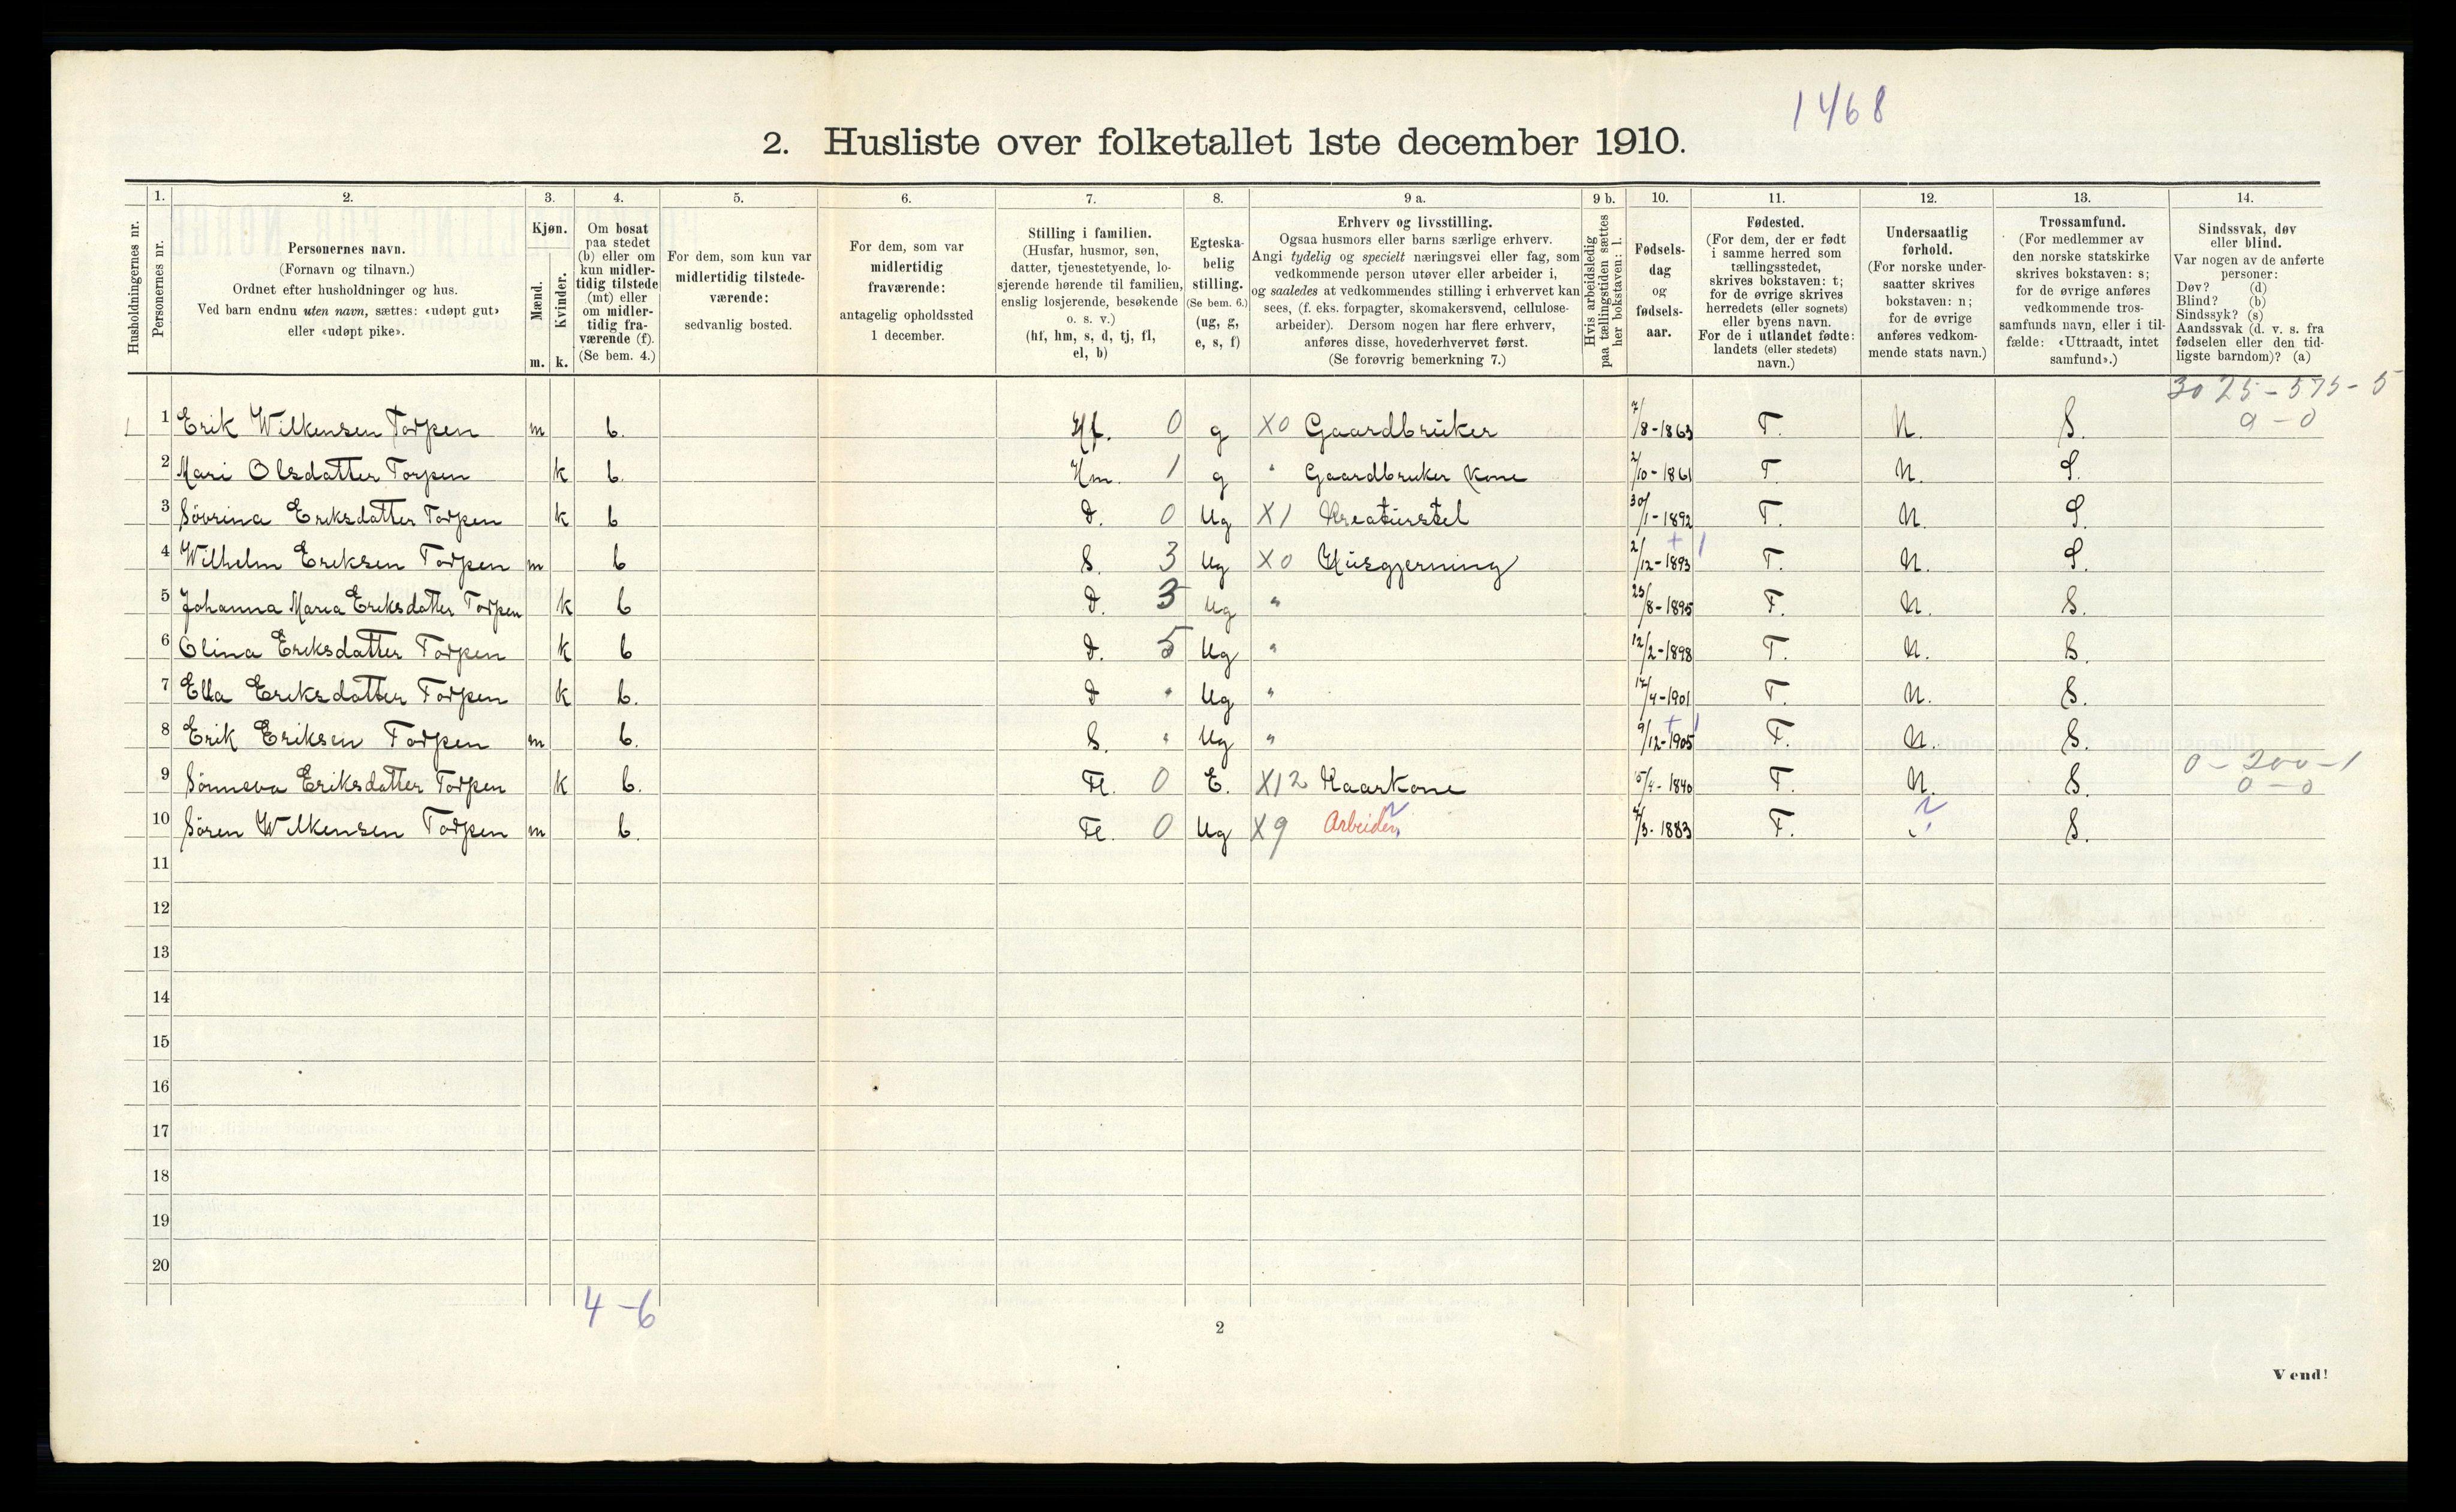 1468
2. Husliste over folketallet 1ste december 1910.
Husholdningernes nr.
1.
Personernes nr.
2.
Personernes navn.
(Fornavn og tilnavn.)
Ordnet efter husholdninger og hus.
Ved barn endnu uten navn, sættes: «udøpt gut»
eller «udøpt pike».
3.
Kjøn.
Mænd. Kvinder.
m. k.
4.
Om bosat
paa stedet
(b) eller om
kun midler-
tidig tilstede
(mt) eller
om midler-
tidig fra-
værende (f).
(Se bem. 4.)
5.
For dem, som kun var
midlertidig tilstede-
værende:
sedvanlig bosted.
6.
For dem, som var
midlertidig
fraværende:
antagelig opholdssted
1 december.
7.
Stilling i familien.
(Husfar, husmor, søn,
datter, tjenestetyende, lo-
sjerende hørende til familien,
enslig losjerende, besøkende
o. s. v.)
(hf, hm, s, d, tj, fl,
el, b)
8.
Egteska-
belig
stilling.
(Se bem. 6.)
(ug, g,
e, s, f)
9 a.
Erhverv og livsstilling.
Ogsaa husmors eller barns særlige erhverv.
Angi tydelig og specielt næringsvei eller fag, som
vedkommende person utøver eller arbeider i,
og saaledes at vedkommendes stilling i erhvervet kan
sees, (f. eks. forpagter, skomakersvend, cellulose-
arbeider). Dersom nogen har flere erhverv,
anføres disse, hovederhvervet først.
(Se forøvrig bemerkning 7.)
9 b.
Hvis arbeidsledig
paa tællingstiden sættes
her bokstaven: l.
10.
Fødsels-
dag
og
fødsels-
aar.
11.
Fødested.
(For dem, der er født
i samme herred som
tællingsstedet,
skrives bokstaven: t;
for de øvrige skrives
herredets (eller sognets)
eller byens navn.
For de i utlandet fødte:
landets (eller stedets)
navn.)
12.
Undersaatlig
forhold.
(For norske under-
saatter skrives
bokstaven: n;
for de øvrige
anføres vedkom-
mende stats navn.)
13.
Trossamfund.
(For medlemmer av
den norske statskirke
skrives bokstaven: s;
for de øvrige anføres
vedkommende tros-
samfunds navn, eller i til-
fælde: «Uttraadt, intet
samfund».)
14.
Sindssvak, døv
eller blind.
Var nogen av de anførte
personer:
Døv? (d)
Blind? (b)
Sindssyk? (s)
Aandssvak (d. v. s. fra
fødselen eller den tid-
ligste barndom)? (a)
3025-575-5
1 1 Erik Wilkensen Torpen m b. Hf. 0 g X0 Gaardbruker 7/8-1863 T. N. S. 0-0
2 Mari Olsdatter Torpen k b. Hm. 1 g " Gaardbruker Kone 2/10-1861 T. N. S.
3 Sövrina Eriksdatter Torpen k b D. 0 Ug X1 Kreaturstel 30/1-1892 T. N. S.
4 Wilhelm Eriksen Torpen m b S. 3 Ug X0 Husgjerning 2/12-1893 + 1 T. N. S.
5 Johanna Maria Eriksdatter Torpen k b D. 3 Ug " 23/8-1895 T. N. S.
6 Olina Eriksdatter Torpen k b D. 5 Ug " 12/2-1898 T. N. S.
7 Ella Eriksdatter Torpen k b. D " Ug " 17/4-1901 T. N. S.
8 Erik Eriksen Torpen m b. S. " Ug " 9/12-1905 + 1 T. N. S.
0-200-1
9 Sönneva Eriksdatter Torpen k b. Fl. 0 E. X12 Kaarkone 5/4-1840 T. N. S. 0-0
10 Sören Wilkensen Torpen m b. Fl. 0 Ug X9 Arbeider 4/3-1883 T. S.
11
12
13
14
15
16
17
18
19
20
4-6
2
Vend!